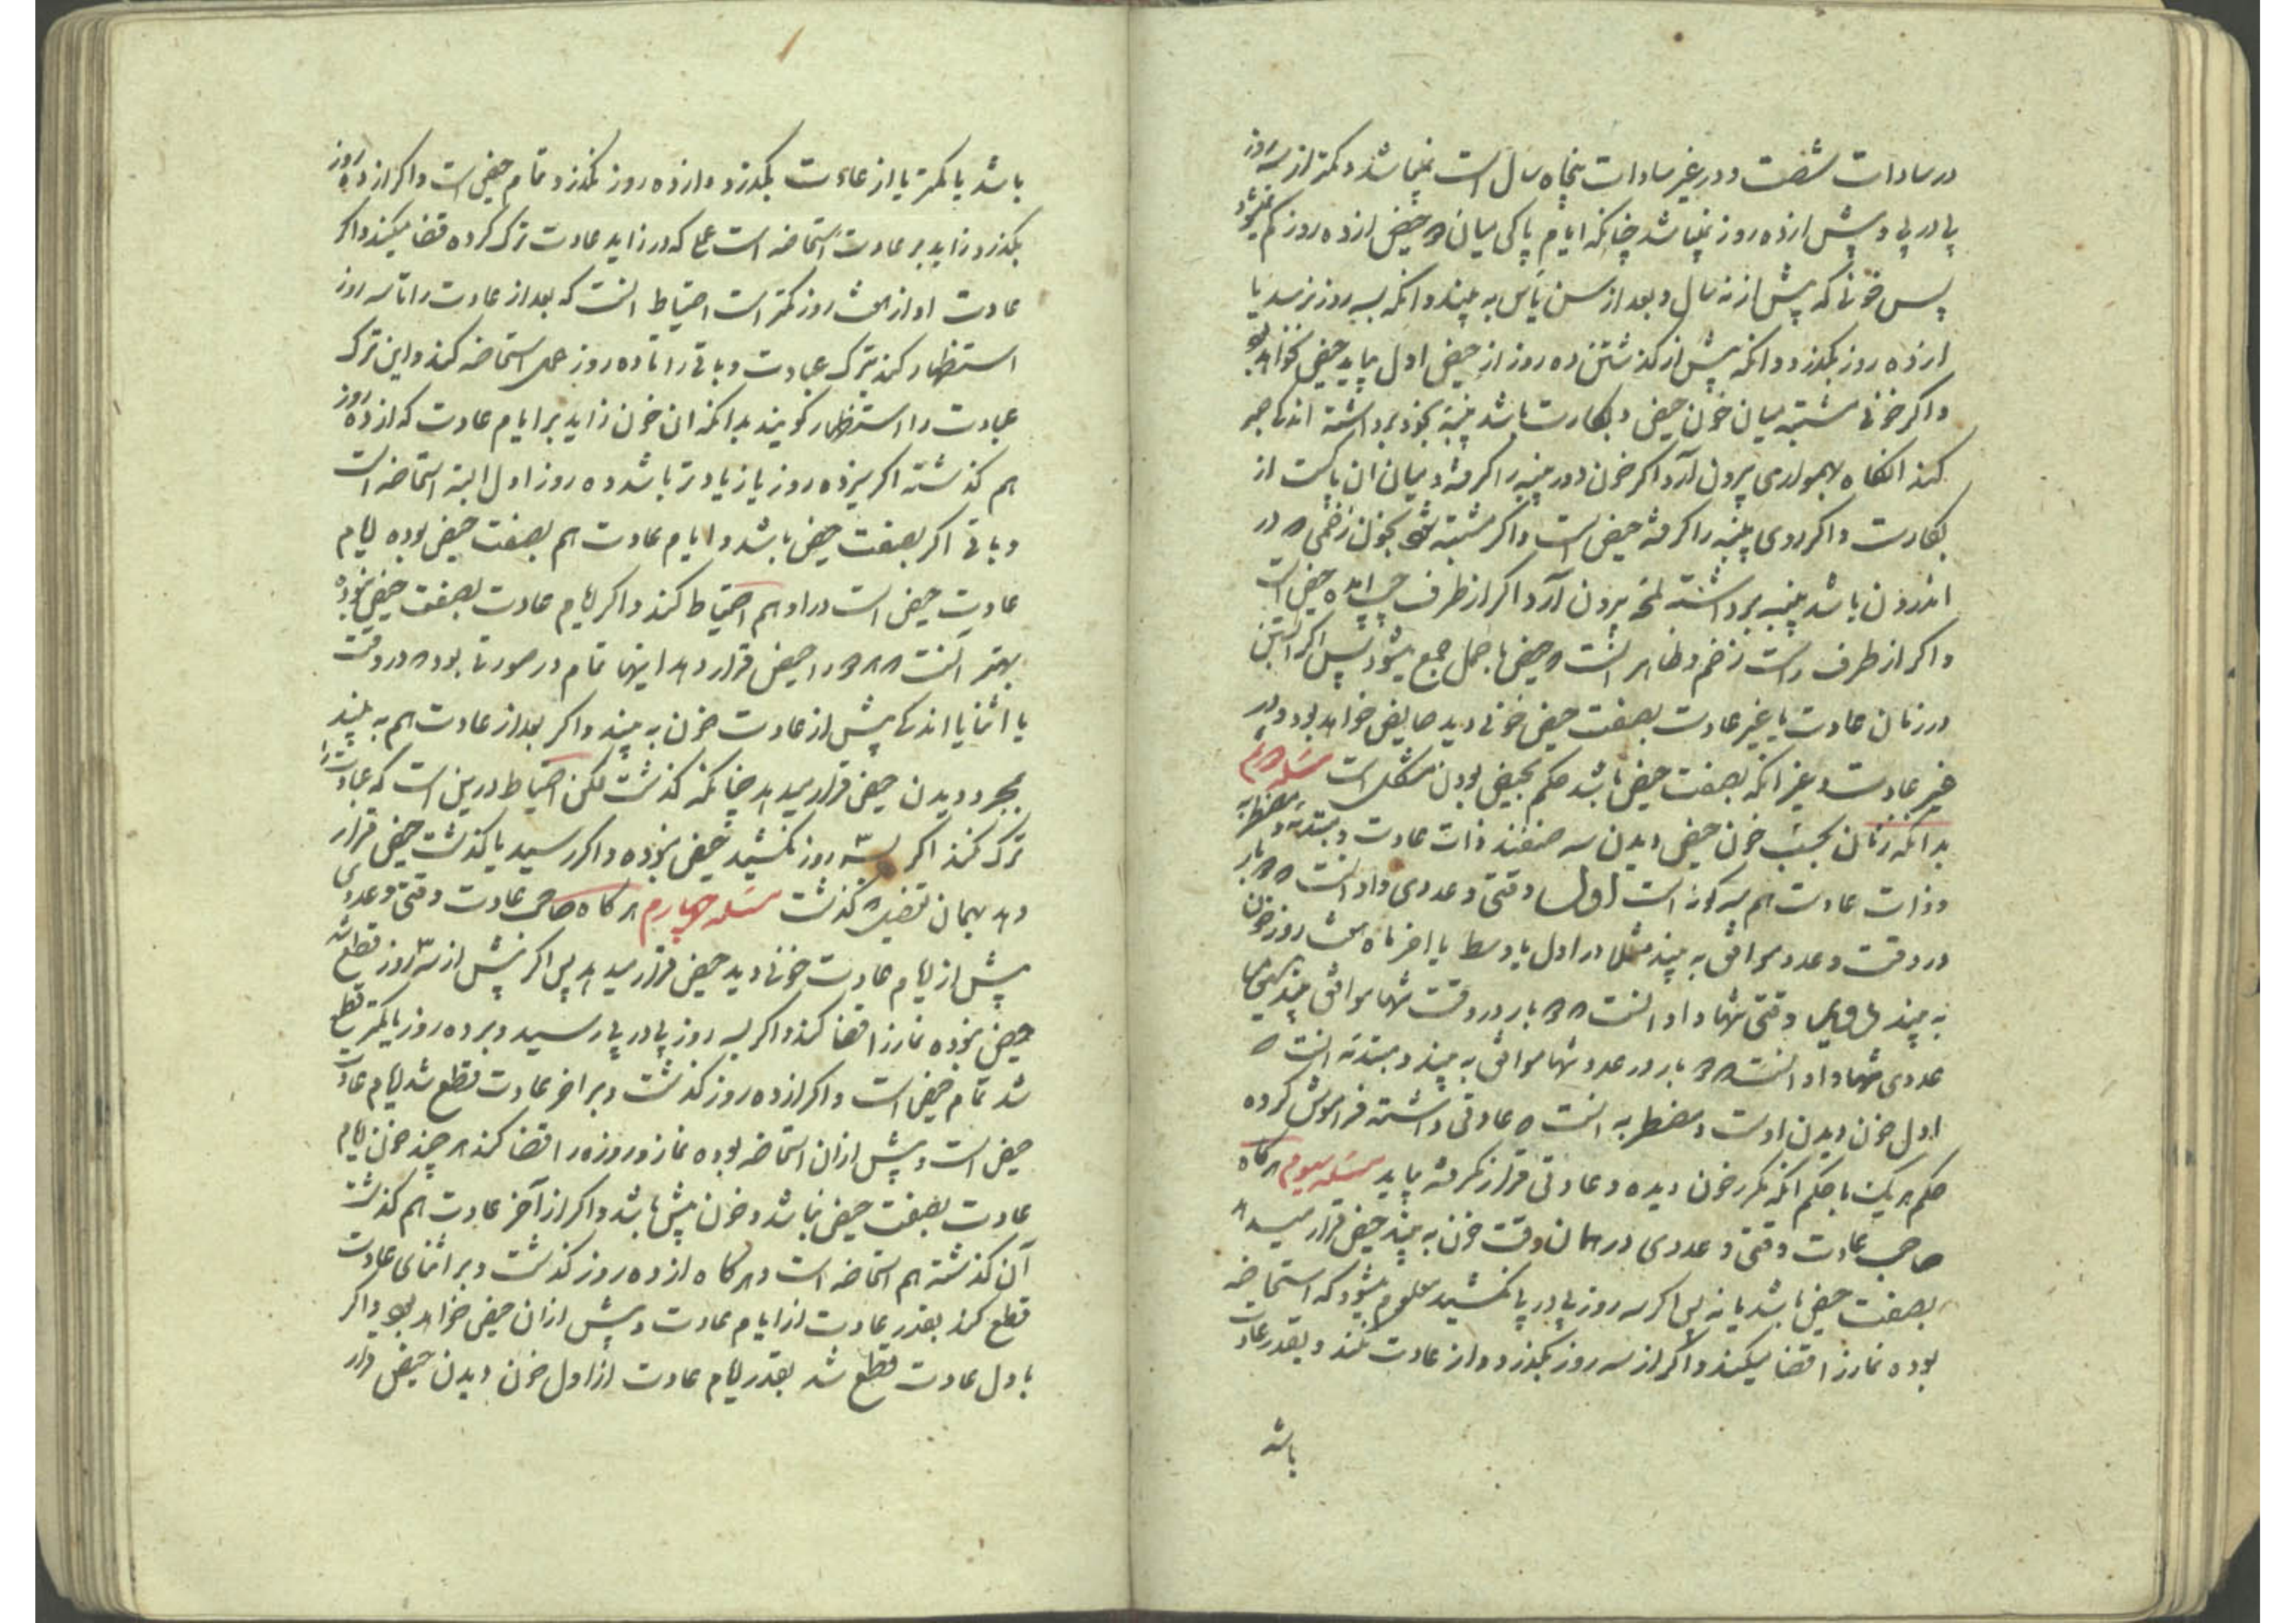 در سادات شصت و در غیر سادات پنجاه سال است نمیباشد و کمتر از سه روز
پی در پی و بیش از ده روز نمیباشد چنانکه ایام پاکی میان دو حیض از ده روز کم نمیشود
پس خونی که پیش از نه سال و بعد از سن یاس به بیند و انکه بسه روز نرسد یا
از ده روز بگذرد و انکه پیش از گذشتن ده روز از حیض اول بیاید حیض نخواهد بود
و اگر خونی مشتبه میان خون حیض و بکارت باشد پنبه بخود برداشته اندکی صبر
کند انگاه بهمواری بیرون آرد اگر خون دور پنبه را گرفته و میان ان پاکست از
بکارت و اگر روی پنبه را گرفته حیض است و اگر مشتبه شود بخون زخمی که در
اندرون باشد پنبه برداشته لمحه بیرون آرد اگر از طرف چپ امده حیض است
و اگر از طرف راست زخم و ظاهر انست که حیض با حمل جمع میشود پس اگر ابستن
در زمان عادت یا غیر عادت بصفت حیض خونی دید حایض خواهد بود و در
غیر عادت و غیر انکه بصفت حیض باشد حکم بحیض بودن مشکل است مسئله دویم
بدانکه زنان بحسب خون حیض دیدن سه صنفند ذات عادت و مبتدئه و مضطربه
و ذات عادت هم سه گونه است اول وقتی و عددی و او انست که دو بار
در وقت و عدد موافق به بیند مثلا در اول یا وسط یا اخر ماه هشت روز خون
به بیند دویم وقتی تنها و او انست که دو بار در وقت تنها موافق بیند سیم
عددی تنها و او انست که دو بار در عدد تنها موافق به بیند و مبتدئه انست که
اول خون دیدن اوست و مضطربه انست که عادتی داشته فراموش کرده
حکم هر یک با حکم انکه مکرر خون دیده و عادتی قرار نگرفته بیاید مسئله سیوم هرگاه
صاحب عادت وقتی و عددی در همان وقت خون به بیند حیض قرار میدهد
بصفت حیض باشد یا نه پس اگر سه روز پی در پی نکشید معلوم میشود که استحاضه
بوده نماز را قضا میکند و اگر از سه روز بگذرد و از عادت نگذرد بقدر عادت
باشد
باشد یا کمتر یا از عادت بگذرد و از ده روز نگذرد تمام حیض است و اگر از ده روز
بگذرد زاید بر عادت استحاضه است که در زاید عادت ترک کرده قضا میکند و اگر
عادت او از هشت روز کمتر است احتیاط انست که بعد از عادت را تا سه روز
استظهار کند بترک عبادت و باقی را تا ده روز عمل استحاضه کند و این ترک
عبادت را استظهار گویند بدانکه ان خون زاید بر ایام عادت که از ده روز
هم گذشته اگر سیزده روز یا زیادتر باشد ده روز اول البته استحاضه است
و باقی اگر بصفت حیض باشد و ایام عادت هم بصفت حیض بوده ایام
عادت حیض است در او هم احتیاط کند و اگر ایام عادت بصفت حیض نبوده
بهتر انست که او را حیض قرار دهد اینها تمام در صورتی بود که در وقت
یا اثنا یا اندکی پیش از عادت خون به بیند و اگر بعد از عادت هم به بیند
بمجرد دیدن حیض قرار میدهد چنانکه گذشت لکن احتیاط درین است که عبادت را
ترک نکند اگر بسه روز نکشید حیض نبوده و اگر رسید یا گذشت حیض قرار
دهد بهمان تفصیل که گذشت مسئله چهارم هرگاه صاحب عادت وقتی و عددی
پیش از ایام عادت خونی دید حیض قرار میدهد پس اگر پیش از سه روز قطع شد
حیض نبوده نماز را قضا کند و اگر بسه روز پی در پی رسید و بر ده روز یا کمتر قطع
شد تمام حیض است و اگر از ده روز گذشت و بر اخر عادت قطع شد ایام عادت
حیض است و پیش از ان استحاضه بوده نماز و روزه را قضا کند هر چند خون ایام
عادت بصفت حیض نباشد و خون پیش باشد و اگر از آخر عادت هم گذشت
آن گذشته هم استحاضه است و هرگاه از ده روز گذشت و بر اثنای عادت
قطع کرد بقدر عادت از ایام عادت و پیش از ان حیض خواهد بود و اگر
باول عادت قطع شد بقدر ایام عادت از اول خون دیدن حیض قرار